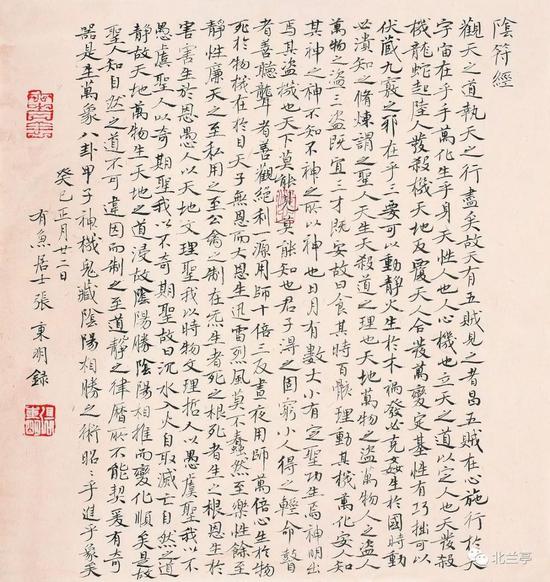 陰符經
觀天之道執天之行盡矣故天有五賊見之者昌五賊在心施行於天
宇宙在乎手萬化生乎身天性人也人心機也立天之道以定人也天發殺
機龍蛇起陸人發殺機天地反覆天人合發萬變定基性有巧拙可以
伏藏九竅之邪在乎三要可以動靜火生於木禍發必克姦生於國時動
必潰知之脩煉謂之聖人天生天殺道之理也天地萬物之盜萬物人之盜人
萬物之盜三盜既宜三才既安故曰食其時百骸理動其機萬化安人知
其神之神不知不神之所以神也日月有數大小有定聖功生焉神明出
焉其盜機也天下莫能見莫能知也君子得之固窮小人得之輕命瞽
者善聽聾者善觀絕利一源用師十倍三反晝夜用師萬倍心生於物
死於物機在於目天子無恩而大恩生迅雷烈風莫不蠢然至樂性餘至
靜性廉天之至私用之至公禽之制在炁生者死之根死者生之根恩生於
害害生於恩愚人以天地文理聖我以時物文理哲人以愚虞聖我以不
愚虞聖人以奇期聖我以不奇期聖故曰沉水入火自取滅亡自然之道
靜故天地萬物生天地之道浸故陰陽勝陰陽相推而變化順矣是故
聖人知自然之道不可違因而制之至道靜之律曆所不能契爰有奇
器是生萬象八卦甲子神機鬼藏陰陽相勝之術昭〻乎進乎象矣
癸巳正月廿二日
有魚居士張東明錄
北兰亭